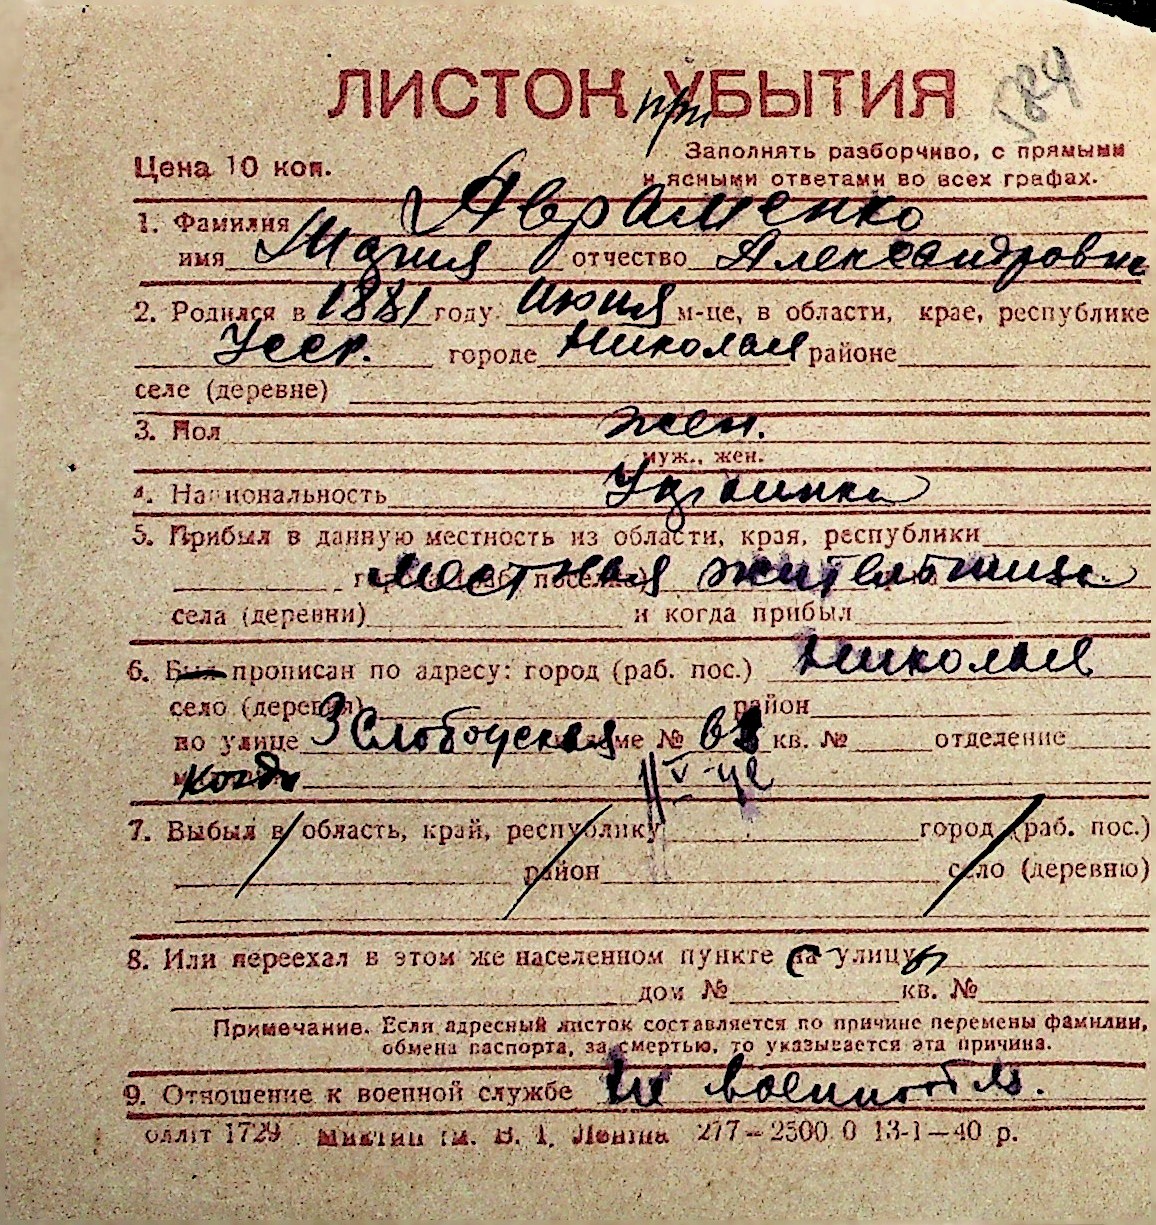 ЛИСТОК УБЫТИЯ
при
584
Цена 10 коп.
Заполнять разборчиво, с прямыми
и ясными ответами во всех графах.
1. Фамилия Авраменко
имя Мария отчество Александровна
2. Родился в 1881 году июня м-це, в области, крае, республике
Усср. городе Николаев районе
селе (деревне)
3. Пол жен.
муж., жен.
4. Национальность Украинка
5. Прибыл в данную местность из области, края, республики
местная жительница
села (деревни) и когда прибыл
6. Был прописан по адресу: город (раб. пос.) Николаев
село (деревня) район
по улице 3 Слободская доме № кв. № отделение
7. Выбыл в область, край, республику город (раб. пос.)
район село (деревню)
8. Или переехал в этом же населенном пункте на улицу
дом № кв. №
Примечание. Если адресный листок составляется по причине перемены фамилии,
обмена паспорта, за смертью, то указывается эта причина.
9. Отношение к военной службе Не военнооб.
1729 Ленина 277—2500 0 13-1—40 р.